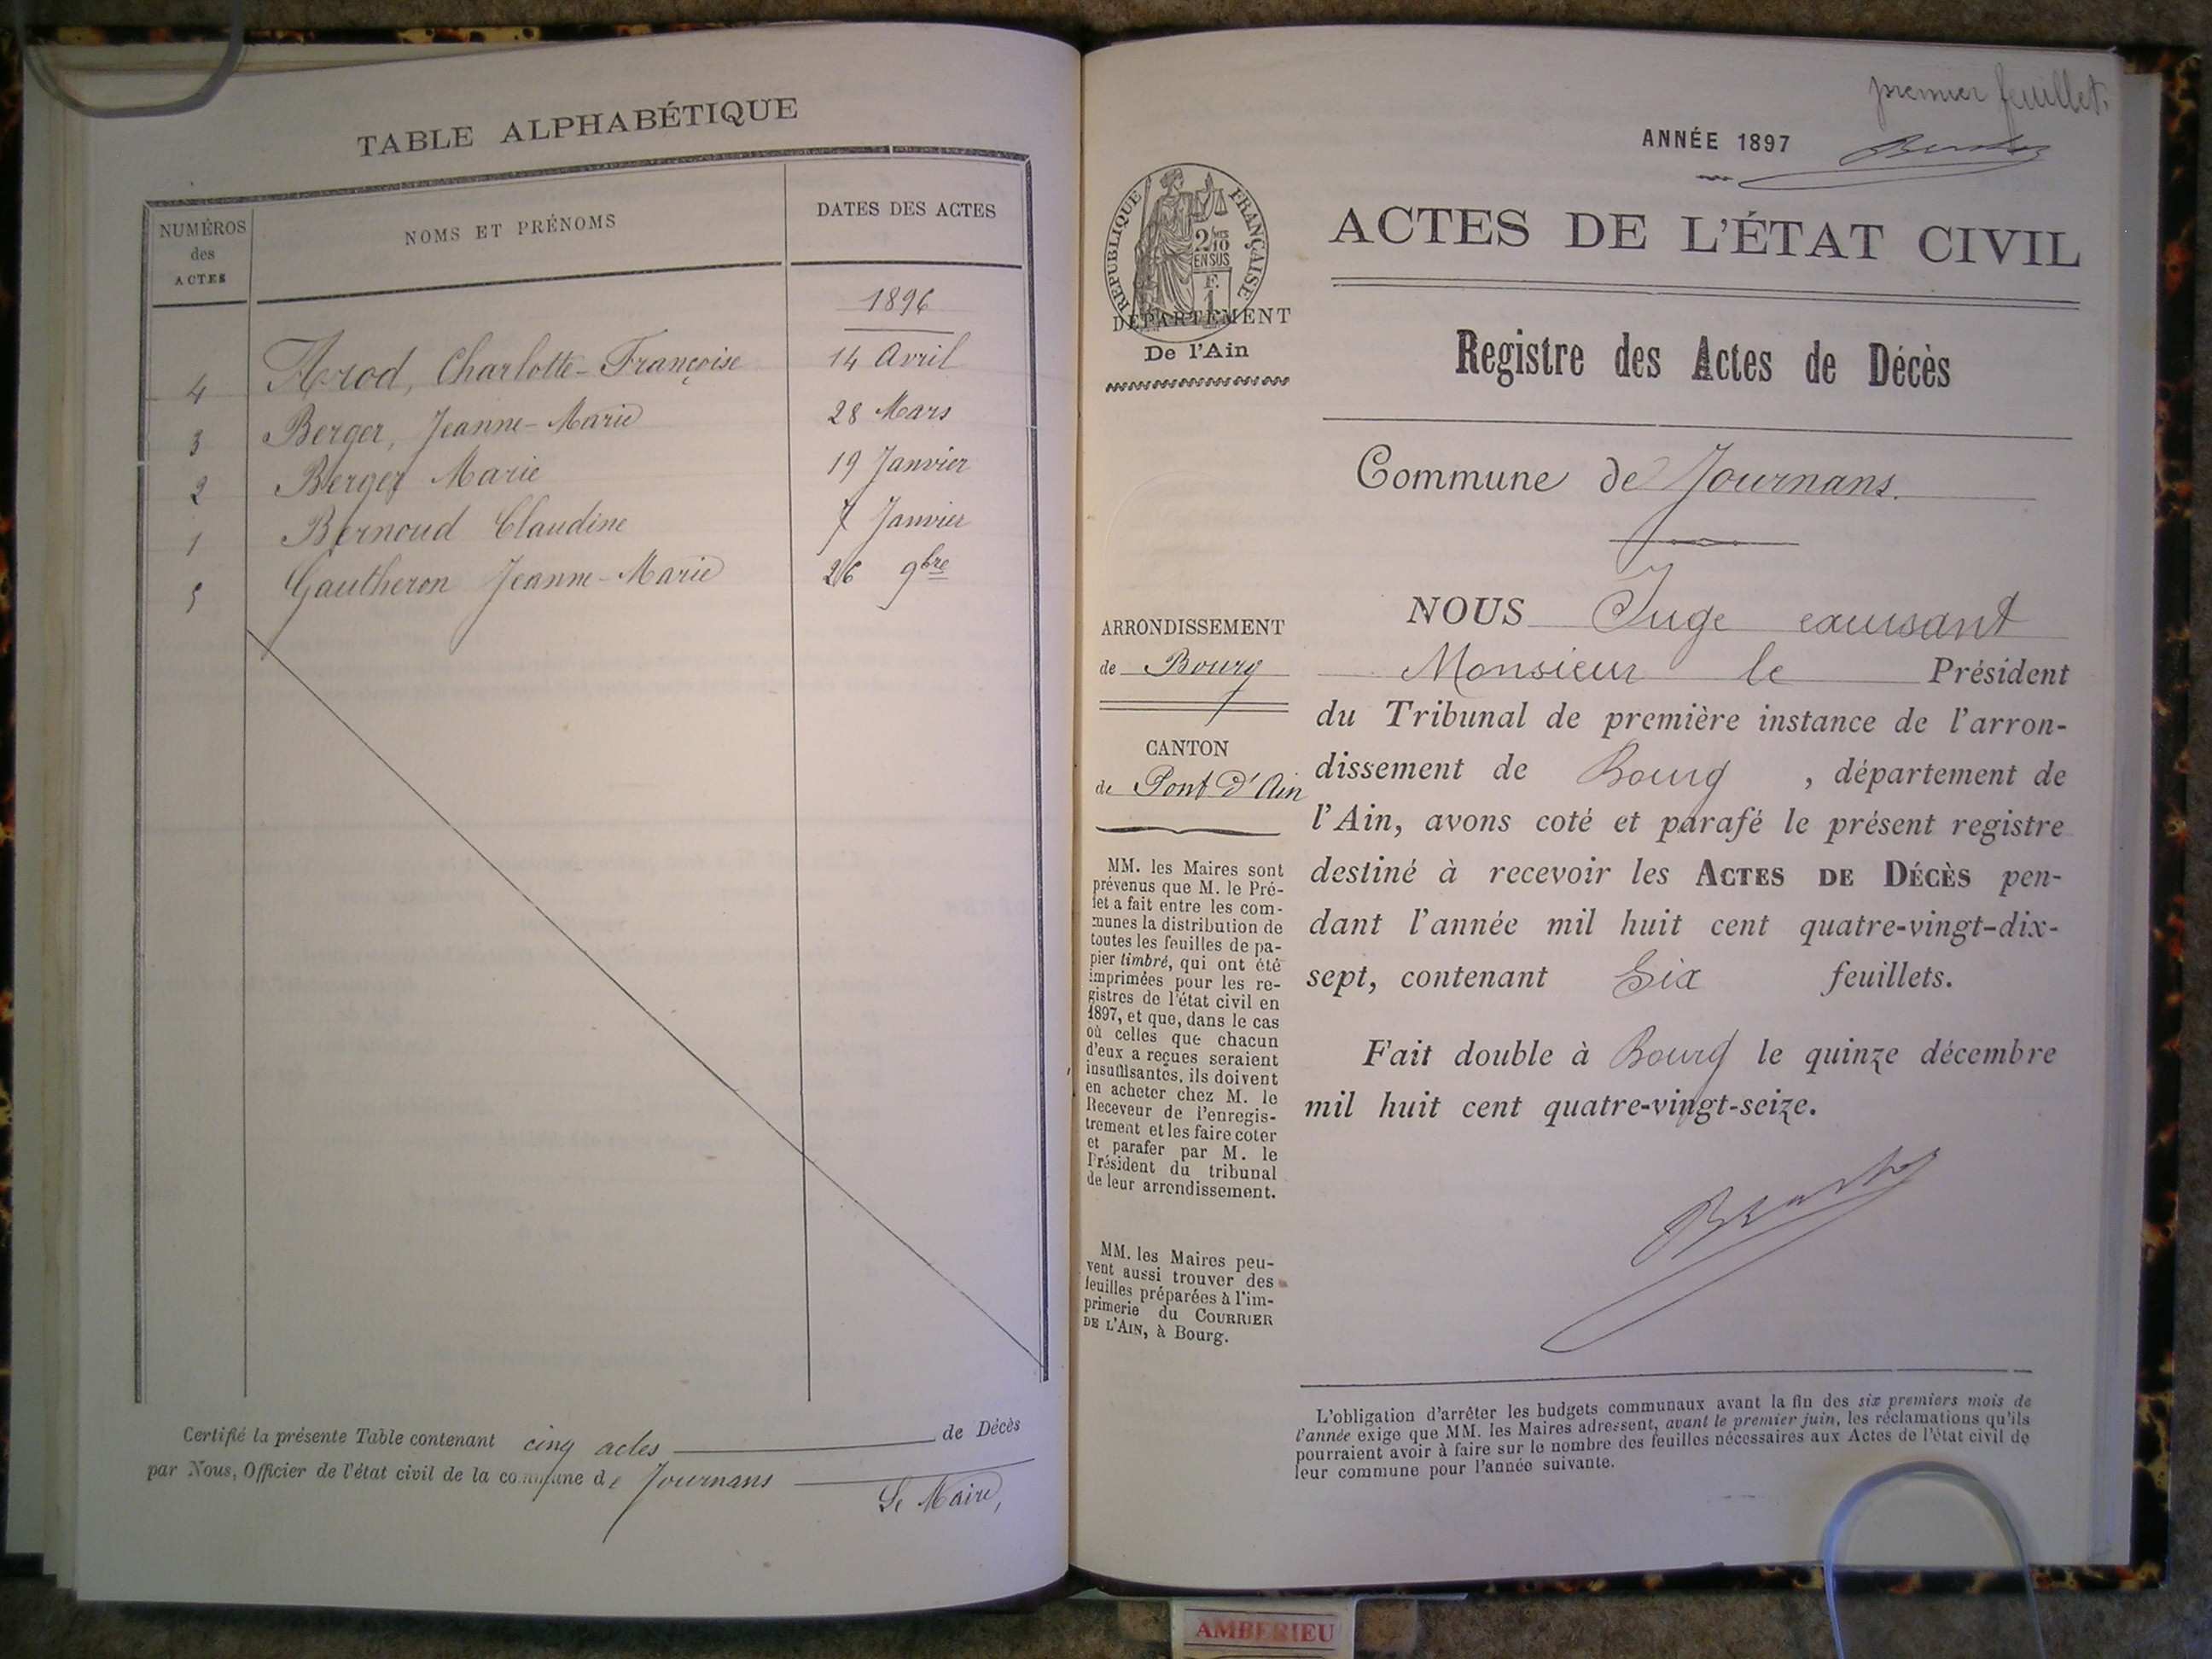 TABLE ALPHABÉTIQUE
NUMÉROS des ACTES
NOMS ET PRÉNOMS
DATES DES ACTES
1896
4 Arod, Charlotte-Françoise 14 Avril
3 Berger, Jeanne-Marie 28 Mars
2 Berger Marie 19 Janvier
1 Bernoud Claudine 7 Janvier
5 Gautheron Jeanne-Marie 26 9bre
Certifié la présente Table contenant cinq actes de Décès
par Nous, Officier de l'état civil de la commune de Journans
Le Maire,
premier feuillet.
ANNÉE 1897
RÉPUBLIQUE FRANÇAISE
2/10 EN SUS
F. 1
DÉPARTEMENT
De l'Ain
ACTES DE L'ÉTAT CIVIL
Registre des Actes de Décès
Commune de Journans.
ARRONDISSEMENT
de Bourg
CANTON
de Pont d'Ain
MM. les Maires sont
prévenus que M. le Pré-
fet a fait entre les com-
munes la distribution de
toutes les feuilles de pa-
pier timbré, qui ont été
imprimées pour les re-
gistres de l'état civil en
1897, et que, dans le cas
où celles que chacun
d'eux a reçues seraient
insuffisantes, ils doivent
en acheter chez M. le
Receveur de l'enregis-
trement et les faire coter
et parafer par M. le
Président du tribunal
de leur arrondissement.
MM. les Maires peu-
vent aussi trouver des
feuilles préparées à l'im-
primerie du COURRIER
DE L'AIN, à Bourg.
NOUS Juge excusant
Monsieur le Président
du Tribunal de première instance de l'arron-
dissement de Bourg , département de
l'Ain, avons coté et parafé le présent registre
destiné à recevoir les ACTES DE DÉCÈS pen-
dant l'année mil huit cent quatre-vingt-dix-
sept, contenant Six feuillets.
Fait double à Bourg le quinze décembre
mil huit cent quatre-vingt-seize.
L'obligation d'arrêter les budgets communaux avant la fin des six premiers mois de
l'année exige que MM. les Maires adressent, avant le premier juin, les réclamations qu'ils
pourraient avoir à faire sur le nombre des feuilles nécessaires aux Actes de l'état civil de
leur commune pour l'année suivante.
AMBERIEU